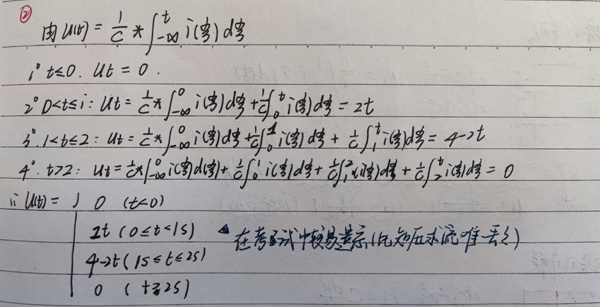 ②
由 u(t) = 1/C * ∫_{-∞}^{t} i(ξ) dξ
1° t≤0. Ut = 0.
2° 0<t≤1: Ut = 1/C * ∫_{-∞}^{0} i(ξ) dξ + 1/C ∫_{0}^{t} i(ξ) dξ = 2t
3°. 1<t≤2: Ut = 1/C * ∫_{-∞}^{0} i(ξ) dξ + 1/C ∫_{0}^{1} i(ξ) dξ + 1/C ∫_{1}^{t} i(ξ) dξ = 4-2t
4°. t>2: Ut = 1/C * ∫_{-∞}^{0} i(ξ) d(ξ) + 1/C ∫_{0}^{1} i(ξ) dξ + 1/C ∫_{1}^{2} i(ξ) dξ + 1/C ∫_{2}^{t} i(ξ) dξ = 0
∴ U(t) = { 0 (t<0)
2t (0≤t<1s)
在考试中较易 已知压求流唯一
4-2t (1s≤t≤2s)
0 (t≥2s)